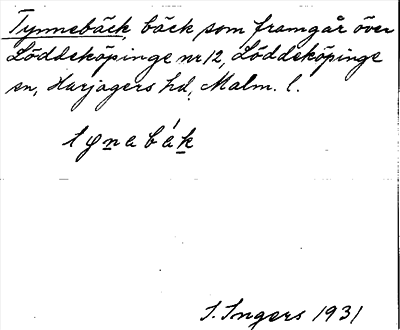 Tynnebäck, bäck som framgår över
Löddeköpinge nr 12, Löddeköpinge
sn, Harjagers hd, Malm. l.
S. Ingers 1931